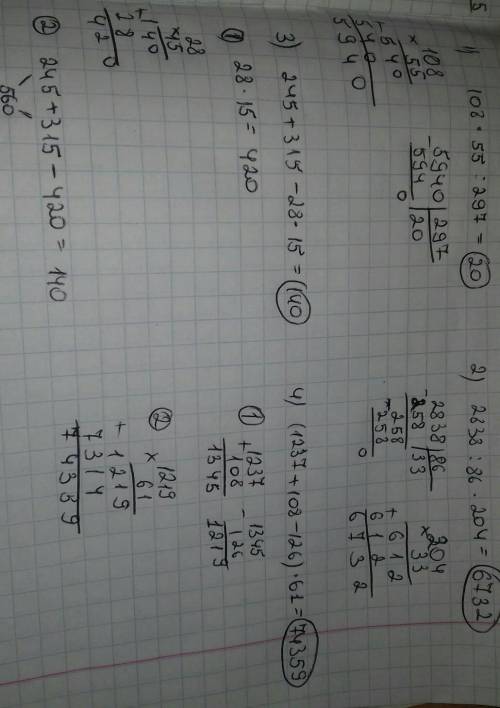 5
1) 108 · 55 : 297 = 20
× 108
55
+ 540
540
5940
- 5940 | 297
594 | 20
0
2) 2838 : 86 · 204 = 6732
- 2838 | 86
258 | 33
- 258
258
0
× 204
33
+ 612
612
6732
3) 245 + 315 - 28 · 15 = 140
① 28 · 15 = 420
28
× 15
+ 140
28
420
② 245 + 315 - 420 = 140
560
4) (1237 + 108 - 126) · 61 = 74359
① + 1237
108
1345
- 1345
126
1219
② × 1219
61
+ 1219
7314
74359